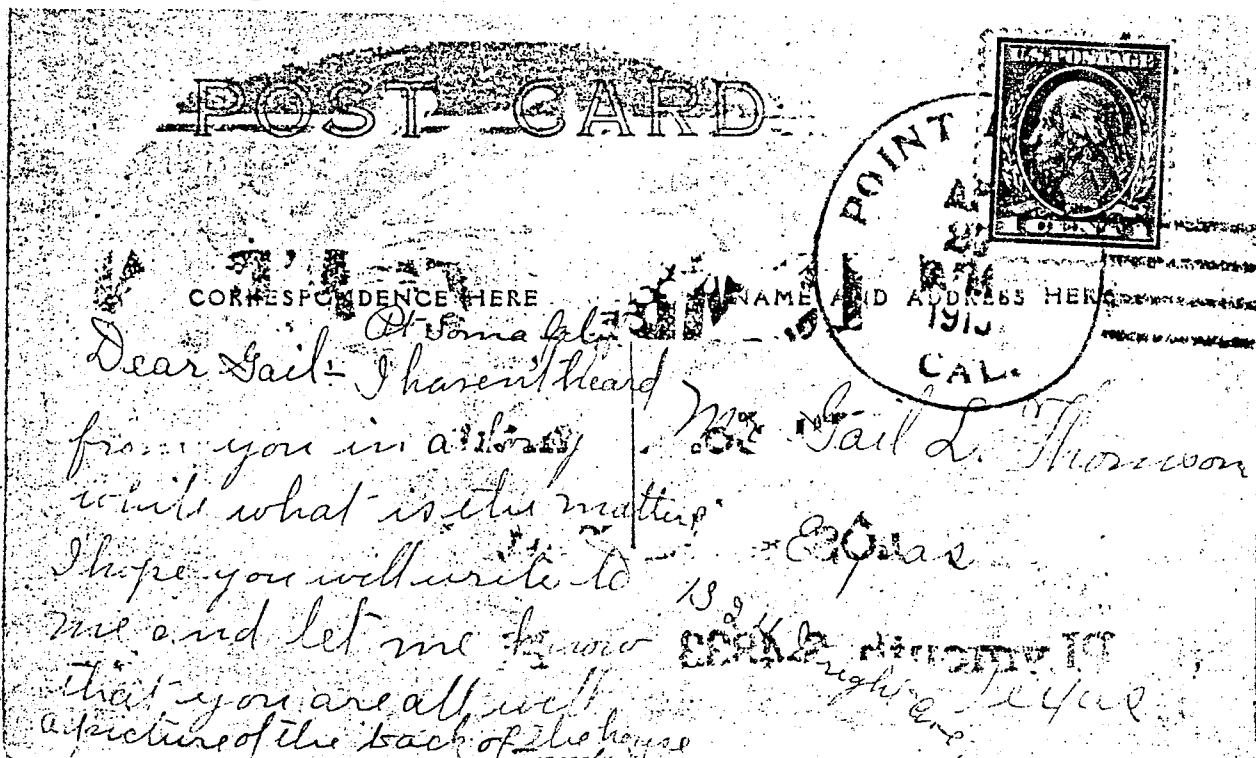 POST CARD
U.S. POSTAGE
POINT
PM
191
CAL.
CORRESPONDENCE HERE
NAME AND ADDRESS HERE
Pt Loma
Dear Gail - I haven't heard
from you in a long
while what is the matter
I hope you will write to
me and let me know
that you are all well
a picture of the back of the house
Gail L. Thomson
Texas